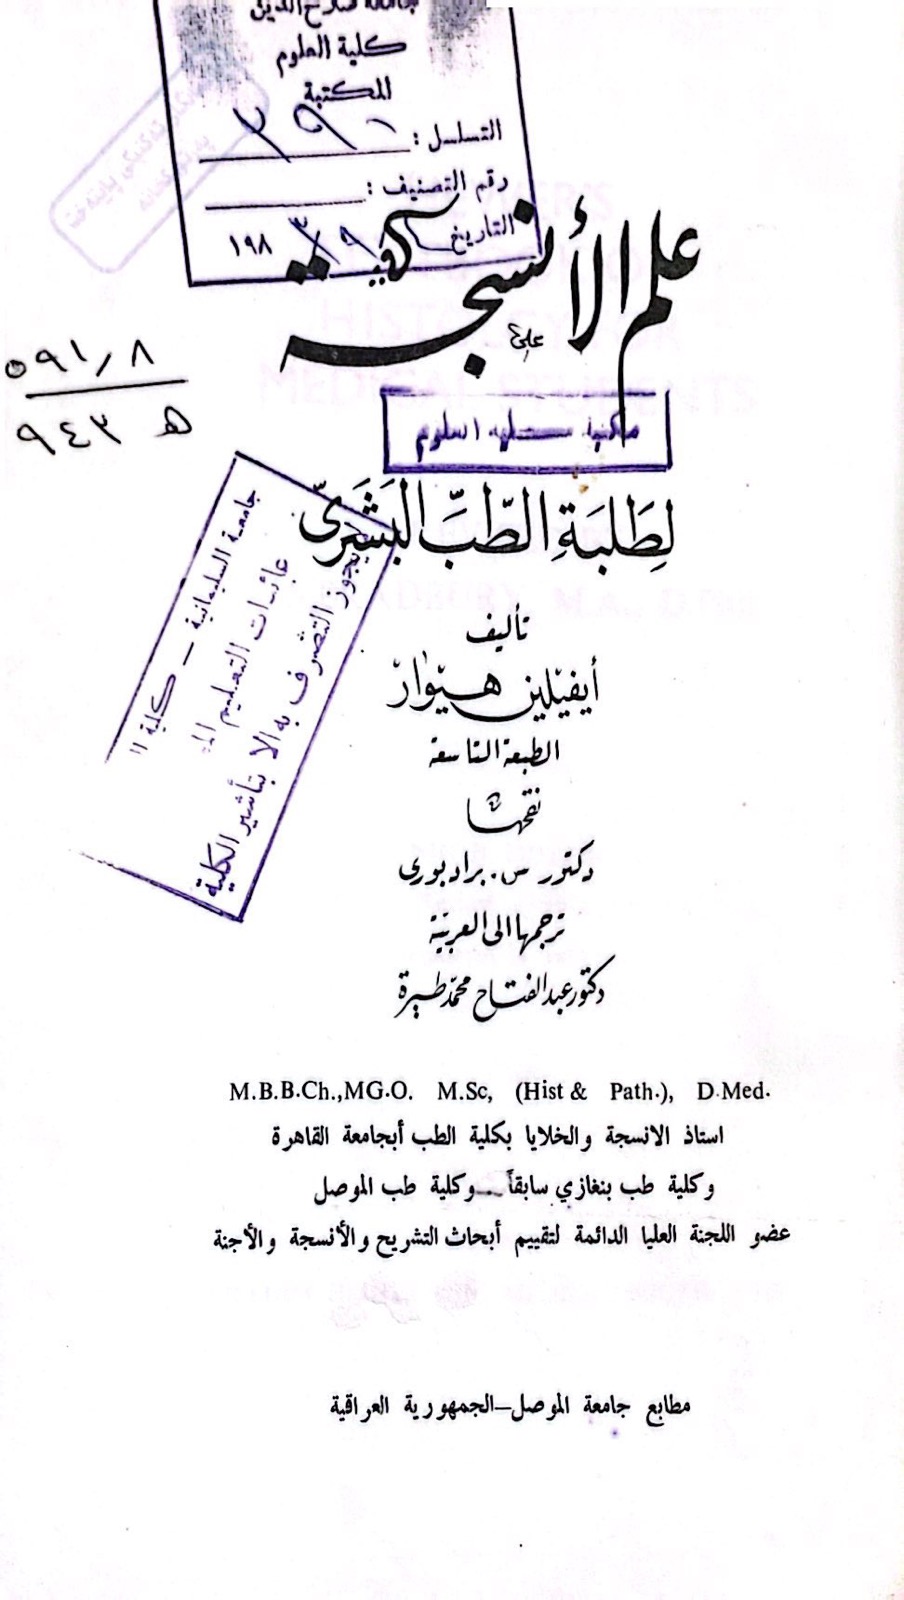 كلية العلوم
المكتبة
التسلسل :
رقم التصنيف :
التاريخ ١٩٨
علم الأنسجة
علي
٥٩١٫٨
٩٤٣ ھ
مكتبة كلية العلوم
لِطَلَبَةِ الطّبِّ البَشَرىّ
جامعة السليمانية – كلية
عائدات التعليم
يجوز التصرف به الا بتأشير الكلية
تأليف
أيفيلين هيوار
الطبعة التاسعة
نقحها
دكتور س. برادبورى
ترجمها الى العربية
دكتور عبد الفتاح محمد طيرة
M.B.B.Ch.,MG.O. M.Sc, (Hist & Path.), D.Med.
استاذ الانسجة والخلايا بكلية الطب أبجامعة القاهرة
وكلية طب بنغازي سابقاً – وكلية طب الموصل
عضو اللجنة العليا الدائمة لتقييم أبحاث التشريح والأنسجة والأجنة
مطابع جامعة الموصل–الجمهورية العراقية